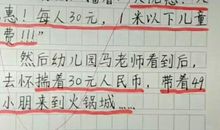 惠！每人30元，1米以下儿童
费！！！”
然后幼儿园马老师看到后，
去怀揣着30元人民币，带着49
小朋来到火锅城……